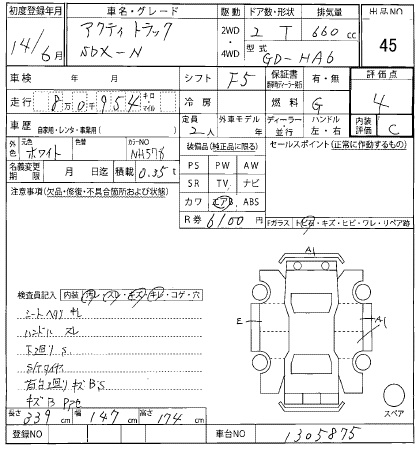 初度登録年月
14年 6月
車名・グレード
アクティ トラック
SDX-N
駆動
2WD
4WD
ドア数・形状
2 T
排気量
660 cc
型式
GD-HA6
出品NO
45
車検 年 月
シフト F5
保証書
有・無
評価点
4
走行 8万0千954 キロ・マイル
冷房
燃料 G
車歴 自家用・レンタ・事業用( )
定員 2人
外車モデル 年
ディーラー・並行
ハンドル 左・右
内装評価 C
外色
元色 ホワイト
色替
カラーNO NH578
装備品(純正品に限る)
セールスポイント(正常に作動するもの)
名義変更期限 月 日迄
積載 0.35t
PS PW AW
SR TV ナビ
カワ エアB ABS
R券 6100
注意事項(欠品・修復・不具合箇所および状態)
Fガラス トビ石・キズ・ヒビ・ワレ・リペア跡
A1
E
A1
検査員記入 内装(汚レ・スレ・キズ・キレ・コゲ・穴)
シートヘタリ キレ
ハンドル スレ
下廻り S
S/Tタイヤ
荷台廻り キズ B'S
キズ B
スペア
長さ 339cm
幅 147cm
高さ 174cm
登録NO
車台NO 1305875